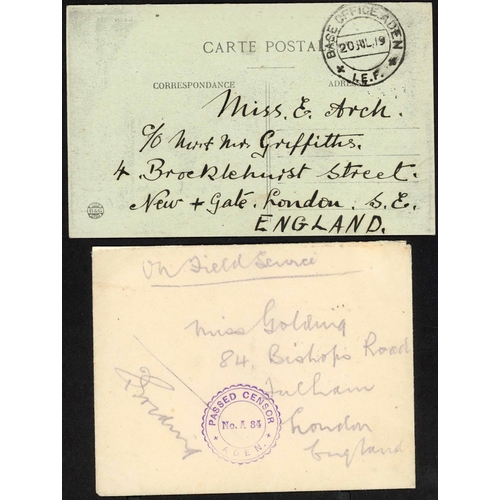 CARTE POSTALE
BASE OFFICE ADEN
20 JUL. 19
I.E.F.
CORRESPONDANCE
Miss. E. Arch.
c/o Mr & Mrs Griffiths.
4. Brocklehurst Street.
New + Gate. London. S.E.
ENGLAND.
On Field Service
Miss Golding
84, Bishops Road
Fulham
London
England
PASSED CENSOR
No. A 84
ADEN.